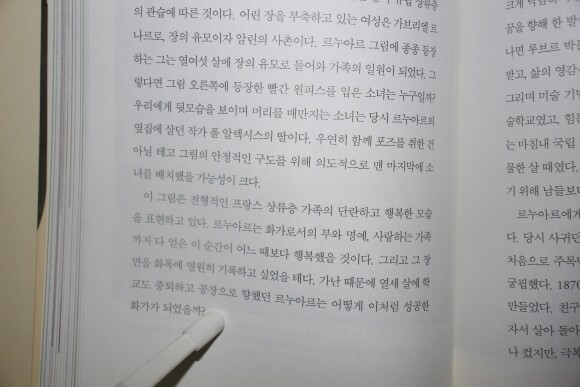 상류층
의 관습에 따른 것이다. 어린 장을 부축하고 있는 여성은 가브리엘 르
나르로, 장의 유모이자 알린의 사촌이다. 르누아르 그림에 종종 등장
하는 그는 열여섯 살에 장의 유모로 들어와 가족의 일원이 되었다. 그
렇다면 그림 오른쪽에 등장한 빨간 원피스를 입은 소녀는 누구일까?
우리에게 뒷모습을 보이며 머리를 매만지는 소녀는 당시 르누아르의
옆집에 살던 작가 폴 알렉시스의 딸이다. 우연히 함께 포즈를 취한 건
아닐 테고 그림의 안정적인 구도를 위해 의도적으로 맨 마지막에 소
녀를 배치했을 가능성이 크다.
이 그림은 전형적인 프랑스 상류층 가족의 단란하고 행복한 모습
을 표현하고 있다. 르누아르는 화가로서의 부와 명예, 사랑하는 가족
까지 다 얻은 이 순간이 어느 때보다 행복했을 것이다. 그리고 그 장
면을 화폭에 영원히 기록하고 싶었을 테다. 가난 때문에 열세 살에 학
교도 중퇴하고 공장으로 향했던 르누아르는 어떻게 이처럼 성공한
화가가 되었을까?
꿈을 향한 한 발
나면 루브르 박물
받고, 삶의 영감
그리며 미술 기
술학교였고, 힘든
는 마침내 국립
물한 살 때였다.
기 위해 남들보
르누아르에게
다. 당시 사귀던
처음으로 주목
궁핍했다. 1870
만들었다. 친구
자서 살아 돌아
나 컸지만, 극복